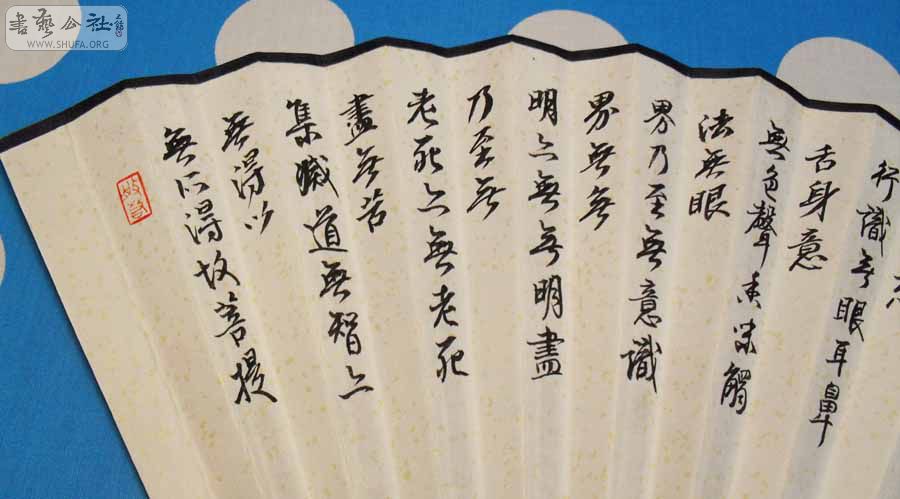 書藝公社
WWW.SHUFA.ORG
行識無眼耳鼻
舌身意
無色聲香味觸
法無眼
界乃至無意識
界無無
明亦無無明盡
乃至無
老死亦無老死
盡無苦
集滅道無智亦
無得以
無所得故菩提